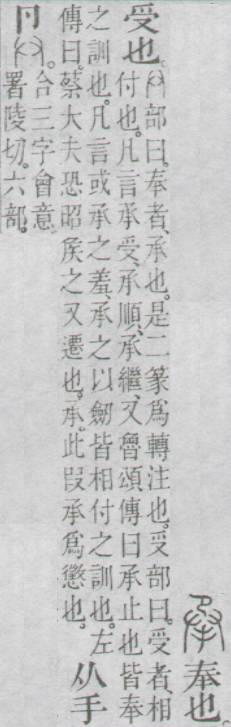 奉也
受也。𠬞部曰。奉者、承也。是二篆爲轉注也。𠬪部曰。受者、相
付也。凡言承受、承順、承繼、又魯頌傳曰承止也皆奉
之訓也。凡言或承之羞、承之以劒皆相付之訓也。左
傳曰。蔡大夫恐昭矦之又遷也。承。此叚承爲懲也。
从手
卪𠬞。合三字會意。
署陵切。六部。